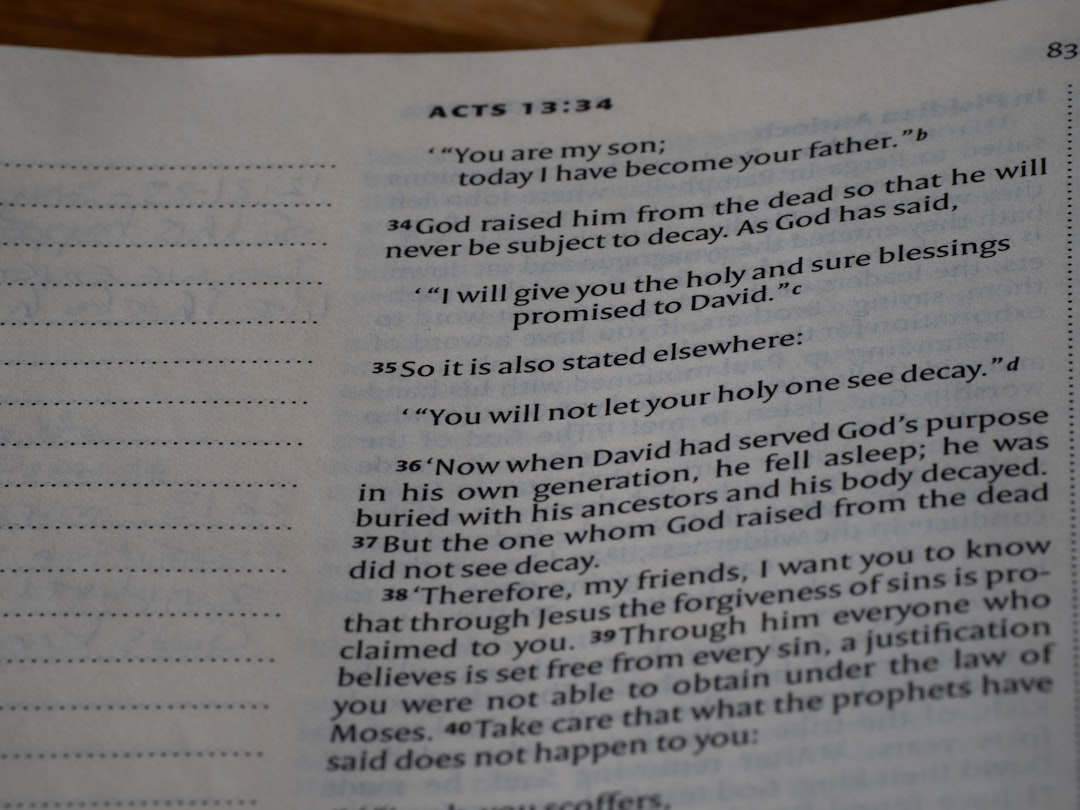 83
ACTS 13:34
‘“You are my son;
today I have become your father.”b
34God raised him from the dead so that he will
never be subject to decay. As God has said,
‘“I will give you the holy and sure blessings
promised to David.”c
35So it is also stated elsewhere:
‘“You will not let your holy one see decay.”d
36‘Now when David had served God’s purpose
in his own generation, he fell asleep; he was
buried with his ancestors and his body decayed.
37But the one whom God raised from the dead
did not see decay.
38‘Therefore, my friends, I want you to know
that through Jesus the forgiveness of sins is pro-
claimed to you. 39Through him everyone who
believes is set free from every sin, a justification
you were not able to obtain under the law of
Moses. 40Take care that what the prophets have
said does not happen to you:
you scoffers,